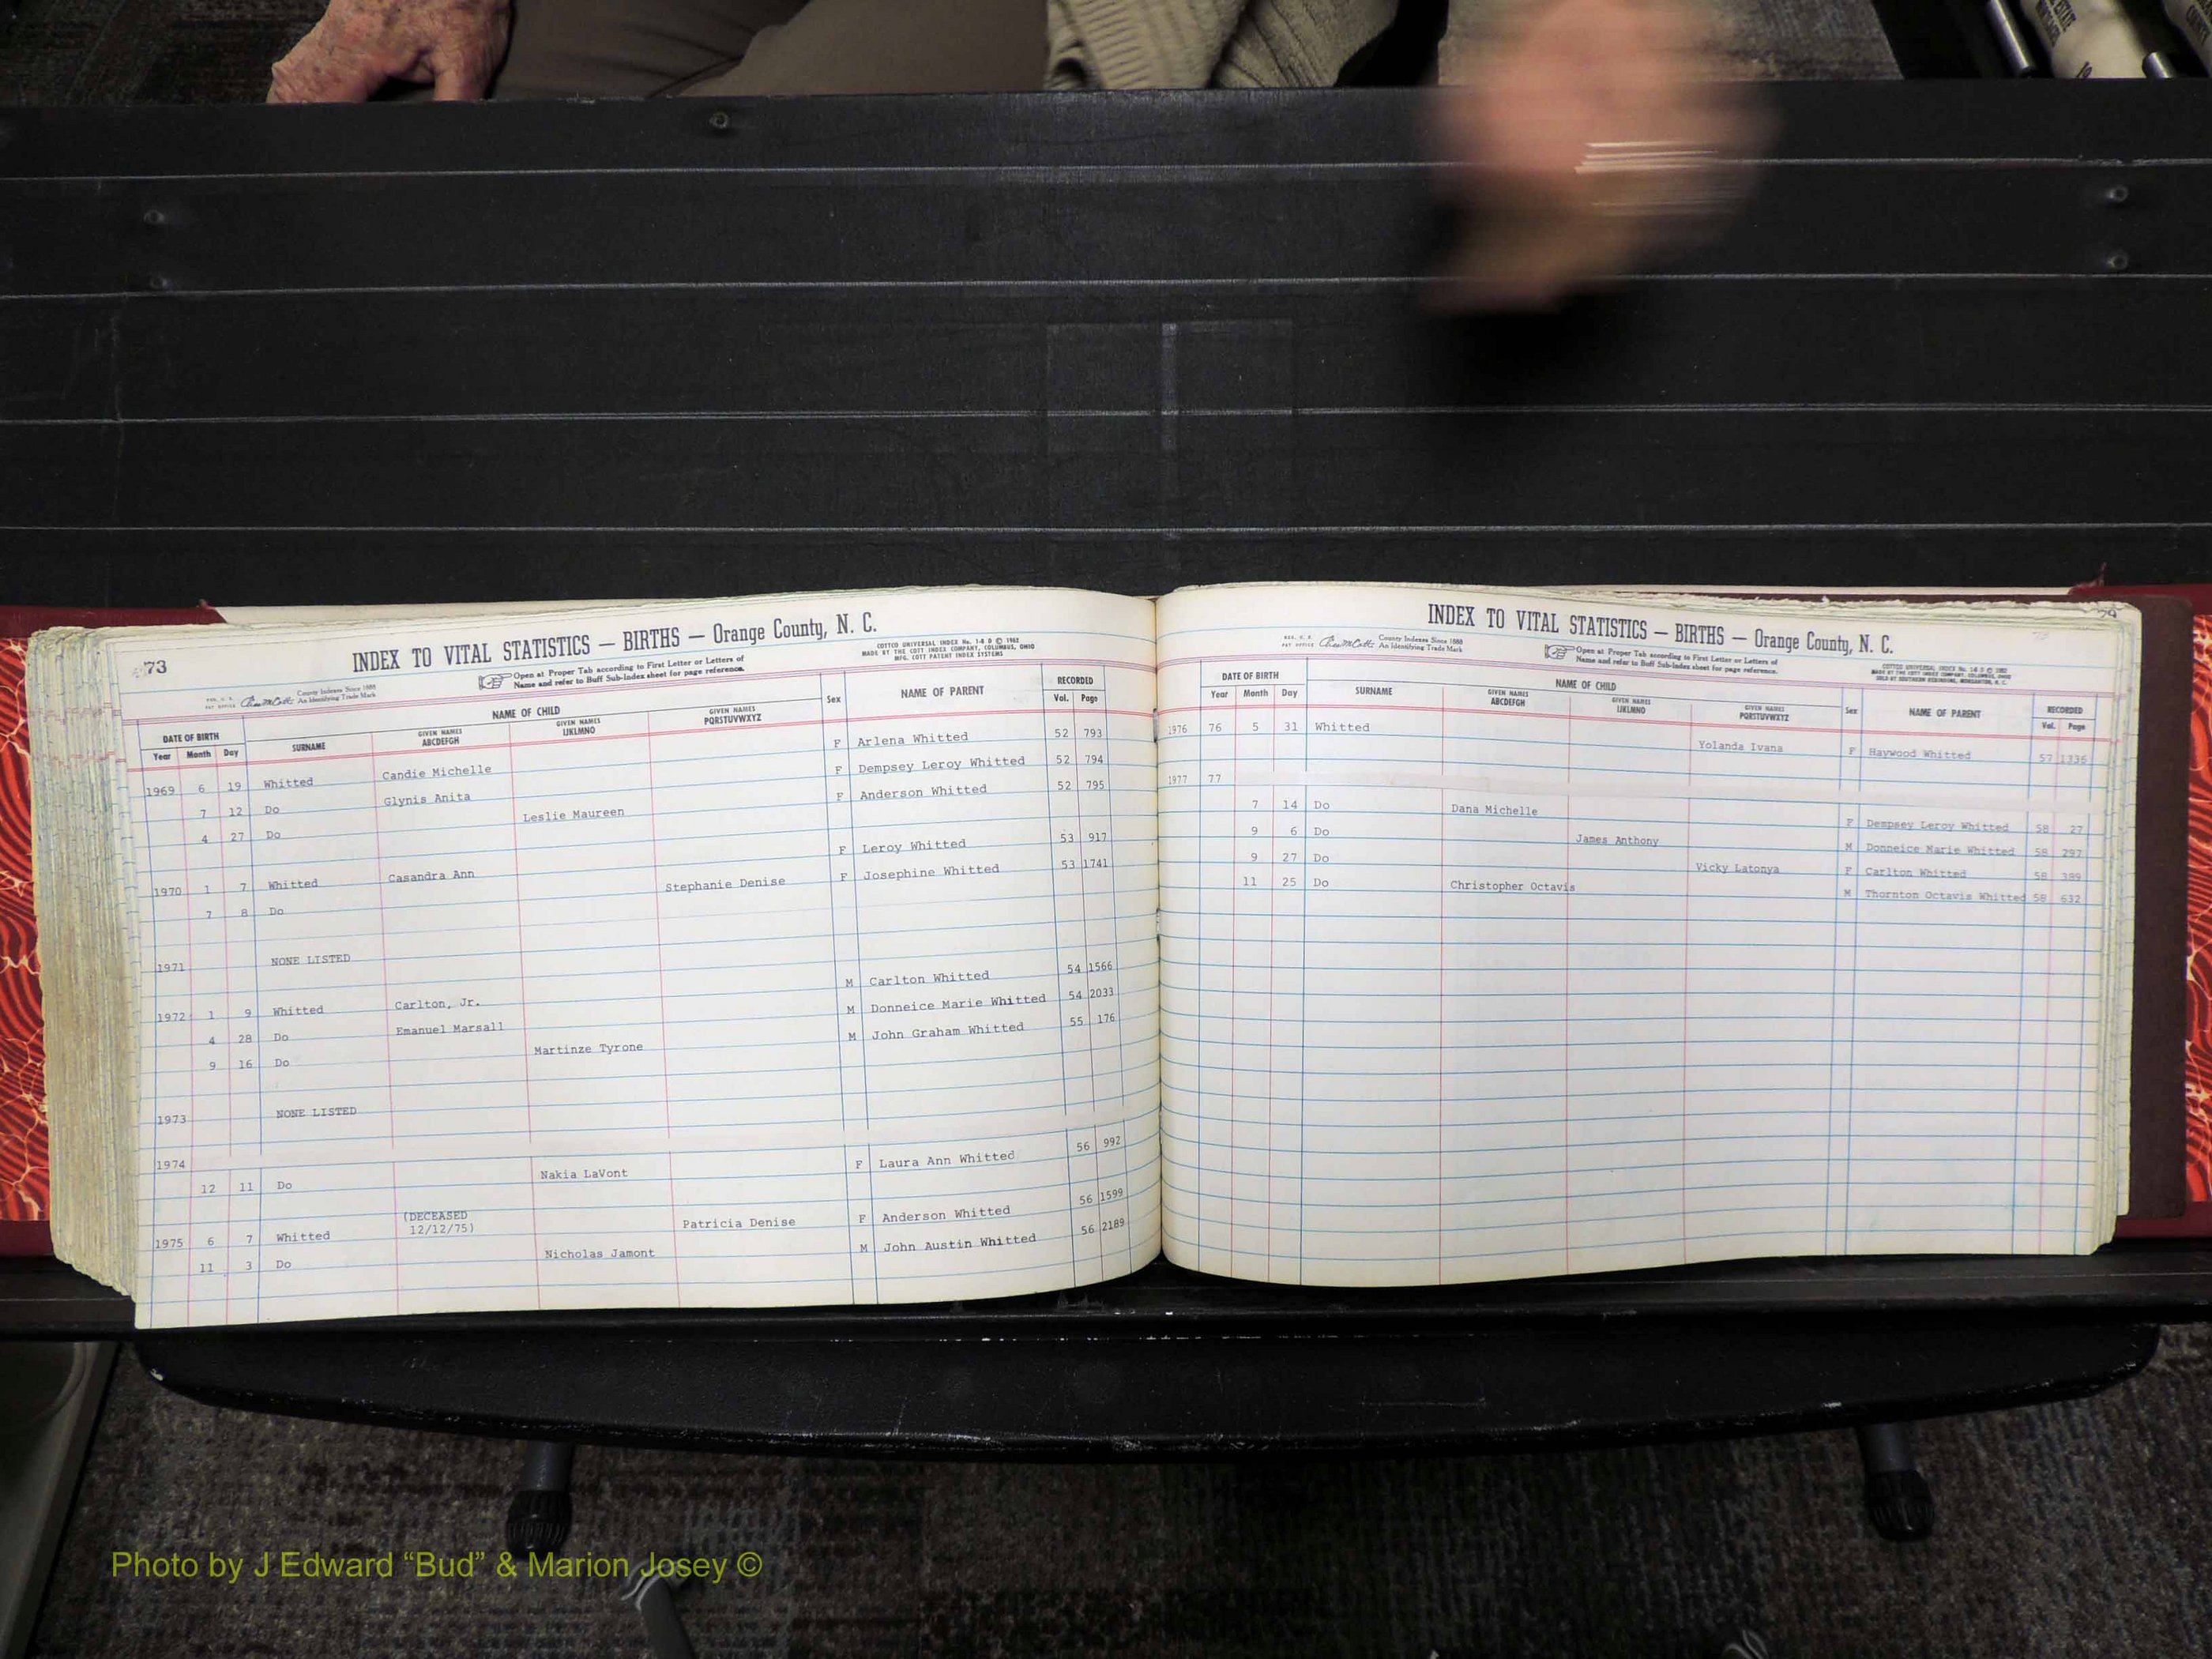 73
INDEX TO VITAL STATISTICS — BIRTHS — Orange County, N. C.
REG. U. S. PAT OFFICE County Indexes Since 1888 An Identifying Trade Mark
Open at Proper Tab according to First Letter or Letters of
Name and refer to Buff Sub-Index sheet for page reference.
COTTCO UNIVERSAL INDEX No. 1-8 D © 1962
MADE BY THE COTT INDEX COMPANY, COLUMBUS, OHIO
MFG. COTT PATENT INDEX SYSTEMS
DATE OF BIRTH NAME OF CHILD Sex NAME OF PARENT RECORDED
Year Month Day SURNAME GIVEN NAMES ABCDEFGH GIVEN NAMES IJKLMNO GIVEN NAMES PQRSTUVWXYZ Vol. Page
1969 6 19 Whitted Candie Michelle F Arlena Whitted 52 793
7 12 Do Glynis Anita F Dempsey Leroy Whitted 52 794
4 27 Do Leslie Maureen F Anderson Whitted 52 795
1970 1 7 Whitted Casandra Ann F Leroy Whitted 53 917
7 8 Do Stephanie Denise F Josephine Whitted 53 1741
1971 NONE LISTED
1972 1 9 Whitted Carlton, Jr. M Carlton Whitted 54 1566
4 28 Do Emanuel Marsall M Donneice Marie Whitted 54 2033
9 16 Do Martinze Tyrone M John Graham Whitted 55 176
1973 NONE LISTED
1974
12 11 Do Nakia LaVont F Laura Ann Whitted 56 992
1975 6 7 Whitted (DECEASED 12/12/75) Patricia Denise F Anderson Whitted 56 1599
11 3 Do Nicholas Jamont M John Austin Whitted 56 2189
INDEX TO VITAL STATISTICS — BIRTHS — Orange County, N. C.
REG. U. S. PAT OFFICE County Indexes Since 1888 An Identifying Trade Mark
Open at Proper Tab according to First Letter or Letters of
Name and refer to Buff Sub-Index sheet for page reference.
DATE OF BIRTH NAME OF CHILD Sex NAME OF PARENT RECORDED
Year Month Day SURNAME GIVEN NAMES ABCDEFGH GIVEN NAMES IJKLMNO GIVEN NAMES PQRSTUVWXYZ Vol. Page
1976 76 5 31 Whitted Yolanda Ivana F Haywood Whitted 57 1336
1977 77
7 14 Do Dana Michelle F Dempsey Leroy Whitted 58 27
9 6 Do James Anthony M Donneice Marie Whitted 58 297
9 27 Do Vicky Latonya F Carlton Whitted 58 389
11 25 Do Christopher Octavis M Thornton Octavis Whitted 58 632
Photo by J Edward “Bud” & Marion Josey ©